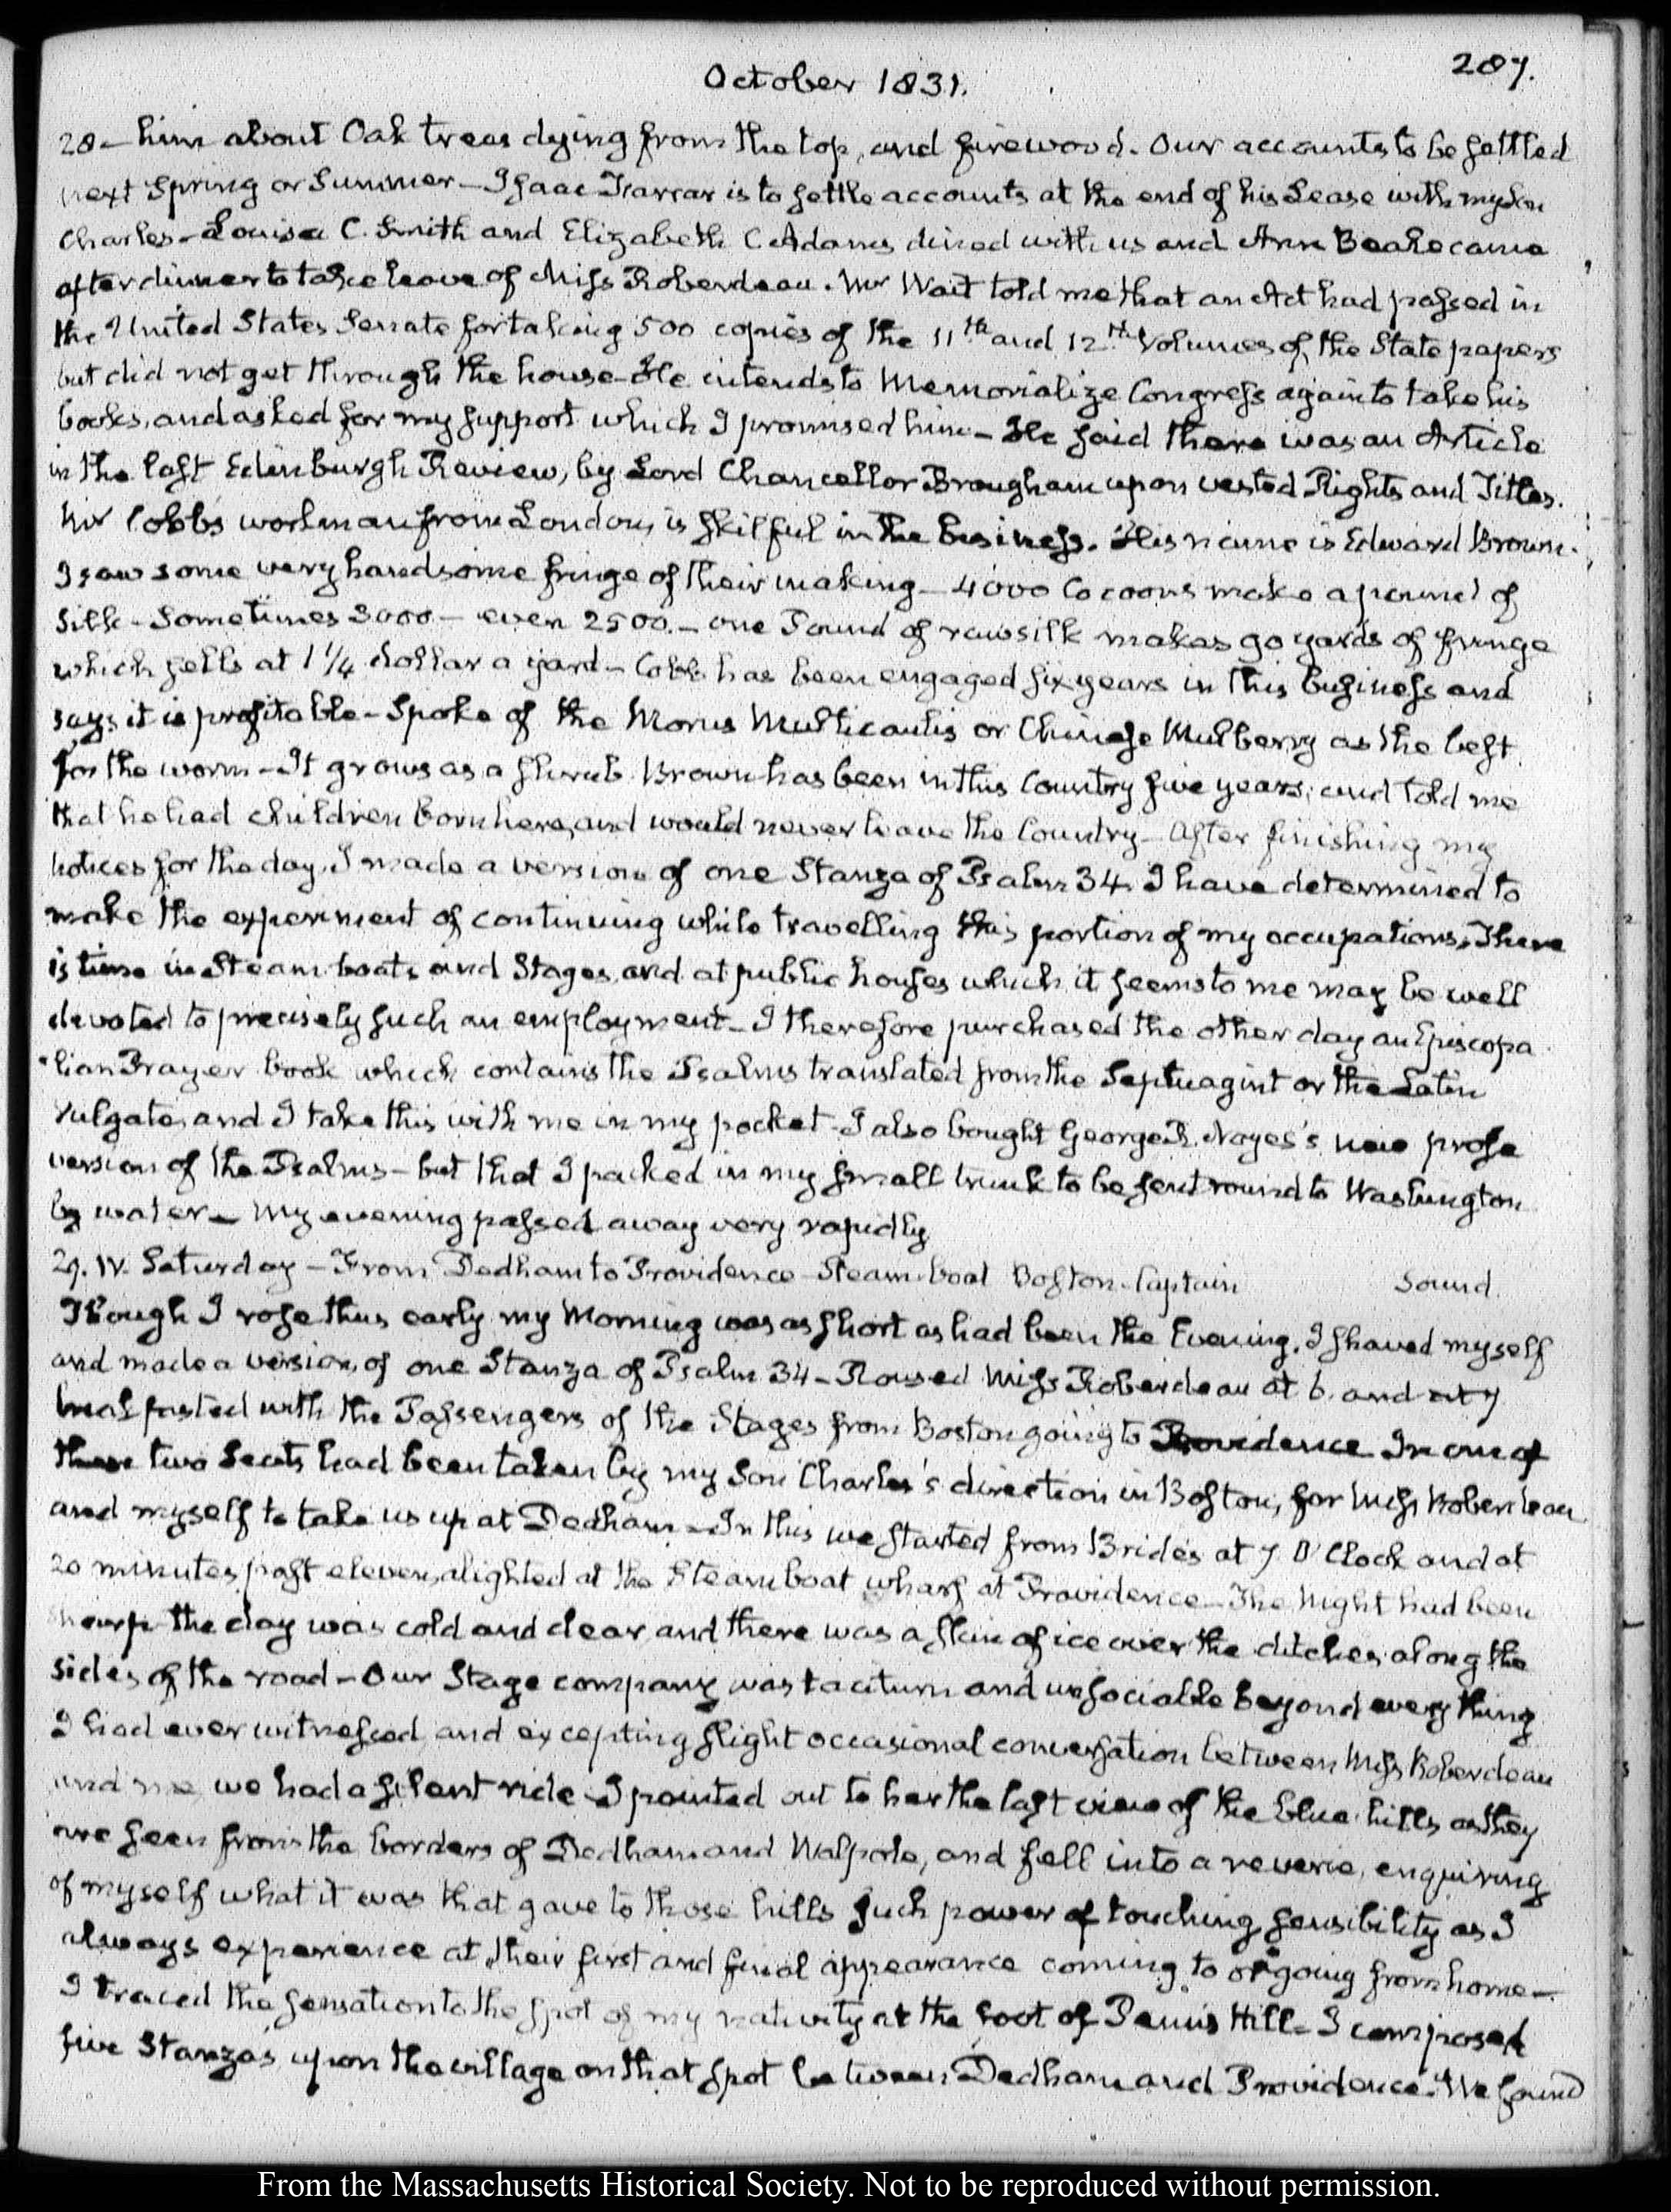 October 1831.
287.
28 – him about Oak trees dying from the top, and firewood. Our accounts to be settled
next Spring or Summer – Isaac Farrar is to settle accounts at the end of his Lease with my Son
Charles – Louisa C. Smith and Elizabeth C. Adams dined with us and Ann Beale came
after dinner to take leave of Miss Roberdeau. Mr Wait told me that an Act had passed in
the United States Senate for taking 500 copies of the 11th and 12th Volumes of the State papers
but did not get through the house – He intends to Memorialize Congress again to take his
books, and asked for my support which I promised him – He said there was an Article
in the last Edinburgh Review, by Lord Chancellor Brougham upon vested Rights and Titles.
Mr Cobb's workman from London, is skilful in the business. His name is Edward Brown.
I saw some very handsome fringe of their making – 4000 Cocoons make a pound of
Silk – Sometimes 3000 – even 2500. – one Pound of raw silk makes 90 yards of fringe
which sells at 1 1/4 dollar a yard – Cobb has been engaged six years in this business and
says it is profitable – Spoke of the Morus Multicaulis or Chinese Mulberry as the best
for the worm – It grows as a shrub. Brown has been in this Country five years, and told me
that he had children born here, and would never leave the Country – After finishing my
notices for the day, I made a version of one Stanza of Psalm 34. I have determined to
make the experiment of continuing while travelling this portion of my occupations, There
is time in Steam-boats and Stages, and at public houses which it seems to me may be well
devoted to precisely such an employment – I therefore purchased the other day an Episcopa
lian Prayer book which contains the Psalms translated from the Septuagint or the Latin
Vulgate, and I take this with me in my pocket – I also bought George R. Noyes's new prose
version of the Psalms – but that I packed in my small trunk to be sent round to Washington
by water – My evening passed away very rapidly
29. IV. Saturday – From Dedham to Providence – Steam-boat Boston – Captain Sound.
Though I rose thus early my Morning was as short as had been the Evening. I shaved myself
and made a version of one Stanza of Psalm 34 – Roused Miss Roberdeau at 6. and at 7
breakfasted with the Passengers of the Stages from Boston going to Providence In one of
these two Seats had been taken by my Son Charles's direction in Boston, for Miss Roberdeau
and myself to take us up at Dedham – In this we started from Bride's at 7 O'Clock and at
20 minutes past eleven, alighted at the Steam boat wharf at Providence – The Night had been
sharp the day was cold and clear and there was a skin of ice over the ditches along the
sides of the road – Our Stage company was taciturn and unsociable beyond every thing
I had ever witnessed and excepting slight occasional conversation between Miss Roberdeau
and me we had a silent ride – I pointed out to her the last view of the blue hills as they
are seen from the borders of Dedham and Walpole, and fell into a reverie, enquiring
of myself what it was that gave to those hills such power of touching sensibility as I
always experience at their first and final appearance coming to or going from home –
I traced the sensation to the spot of my nativity at the foot of Penn's Hill – I composed
five Stanza's upon the village on that spot between Dedham and Providence. We found
From the Massachusetts Historical Society. Not to be reproduced without permission.